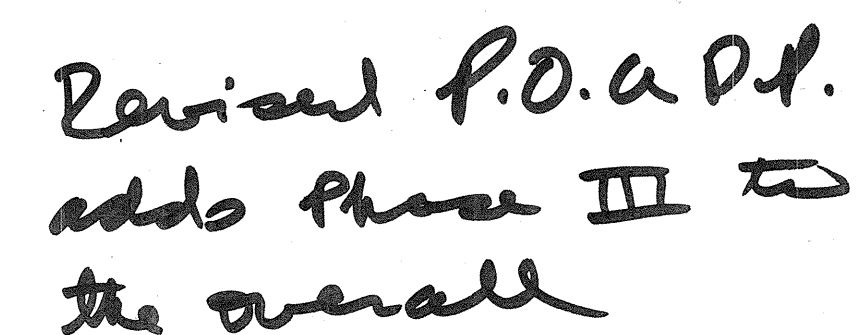 Revised P.O. a D.P.
adds Phase III to
the overall